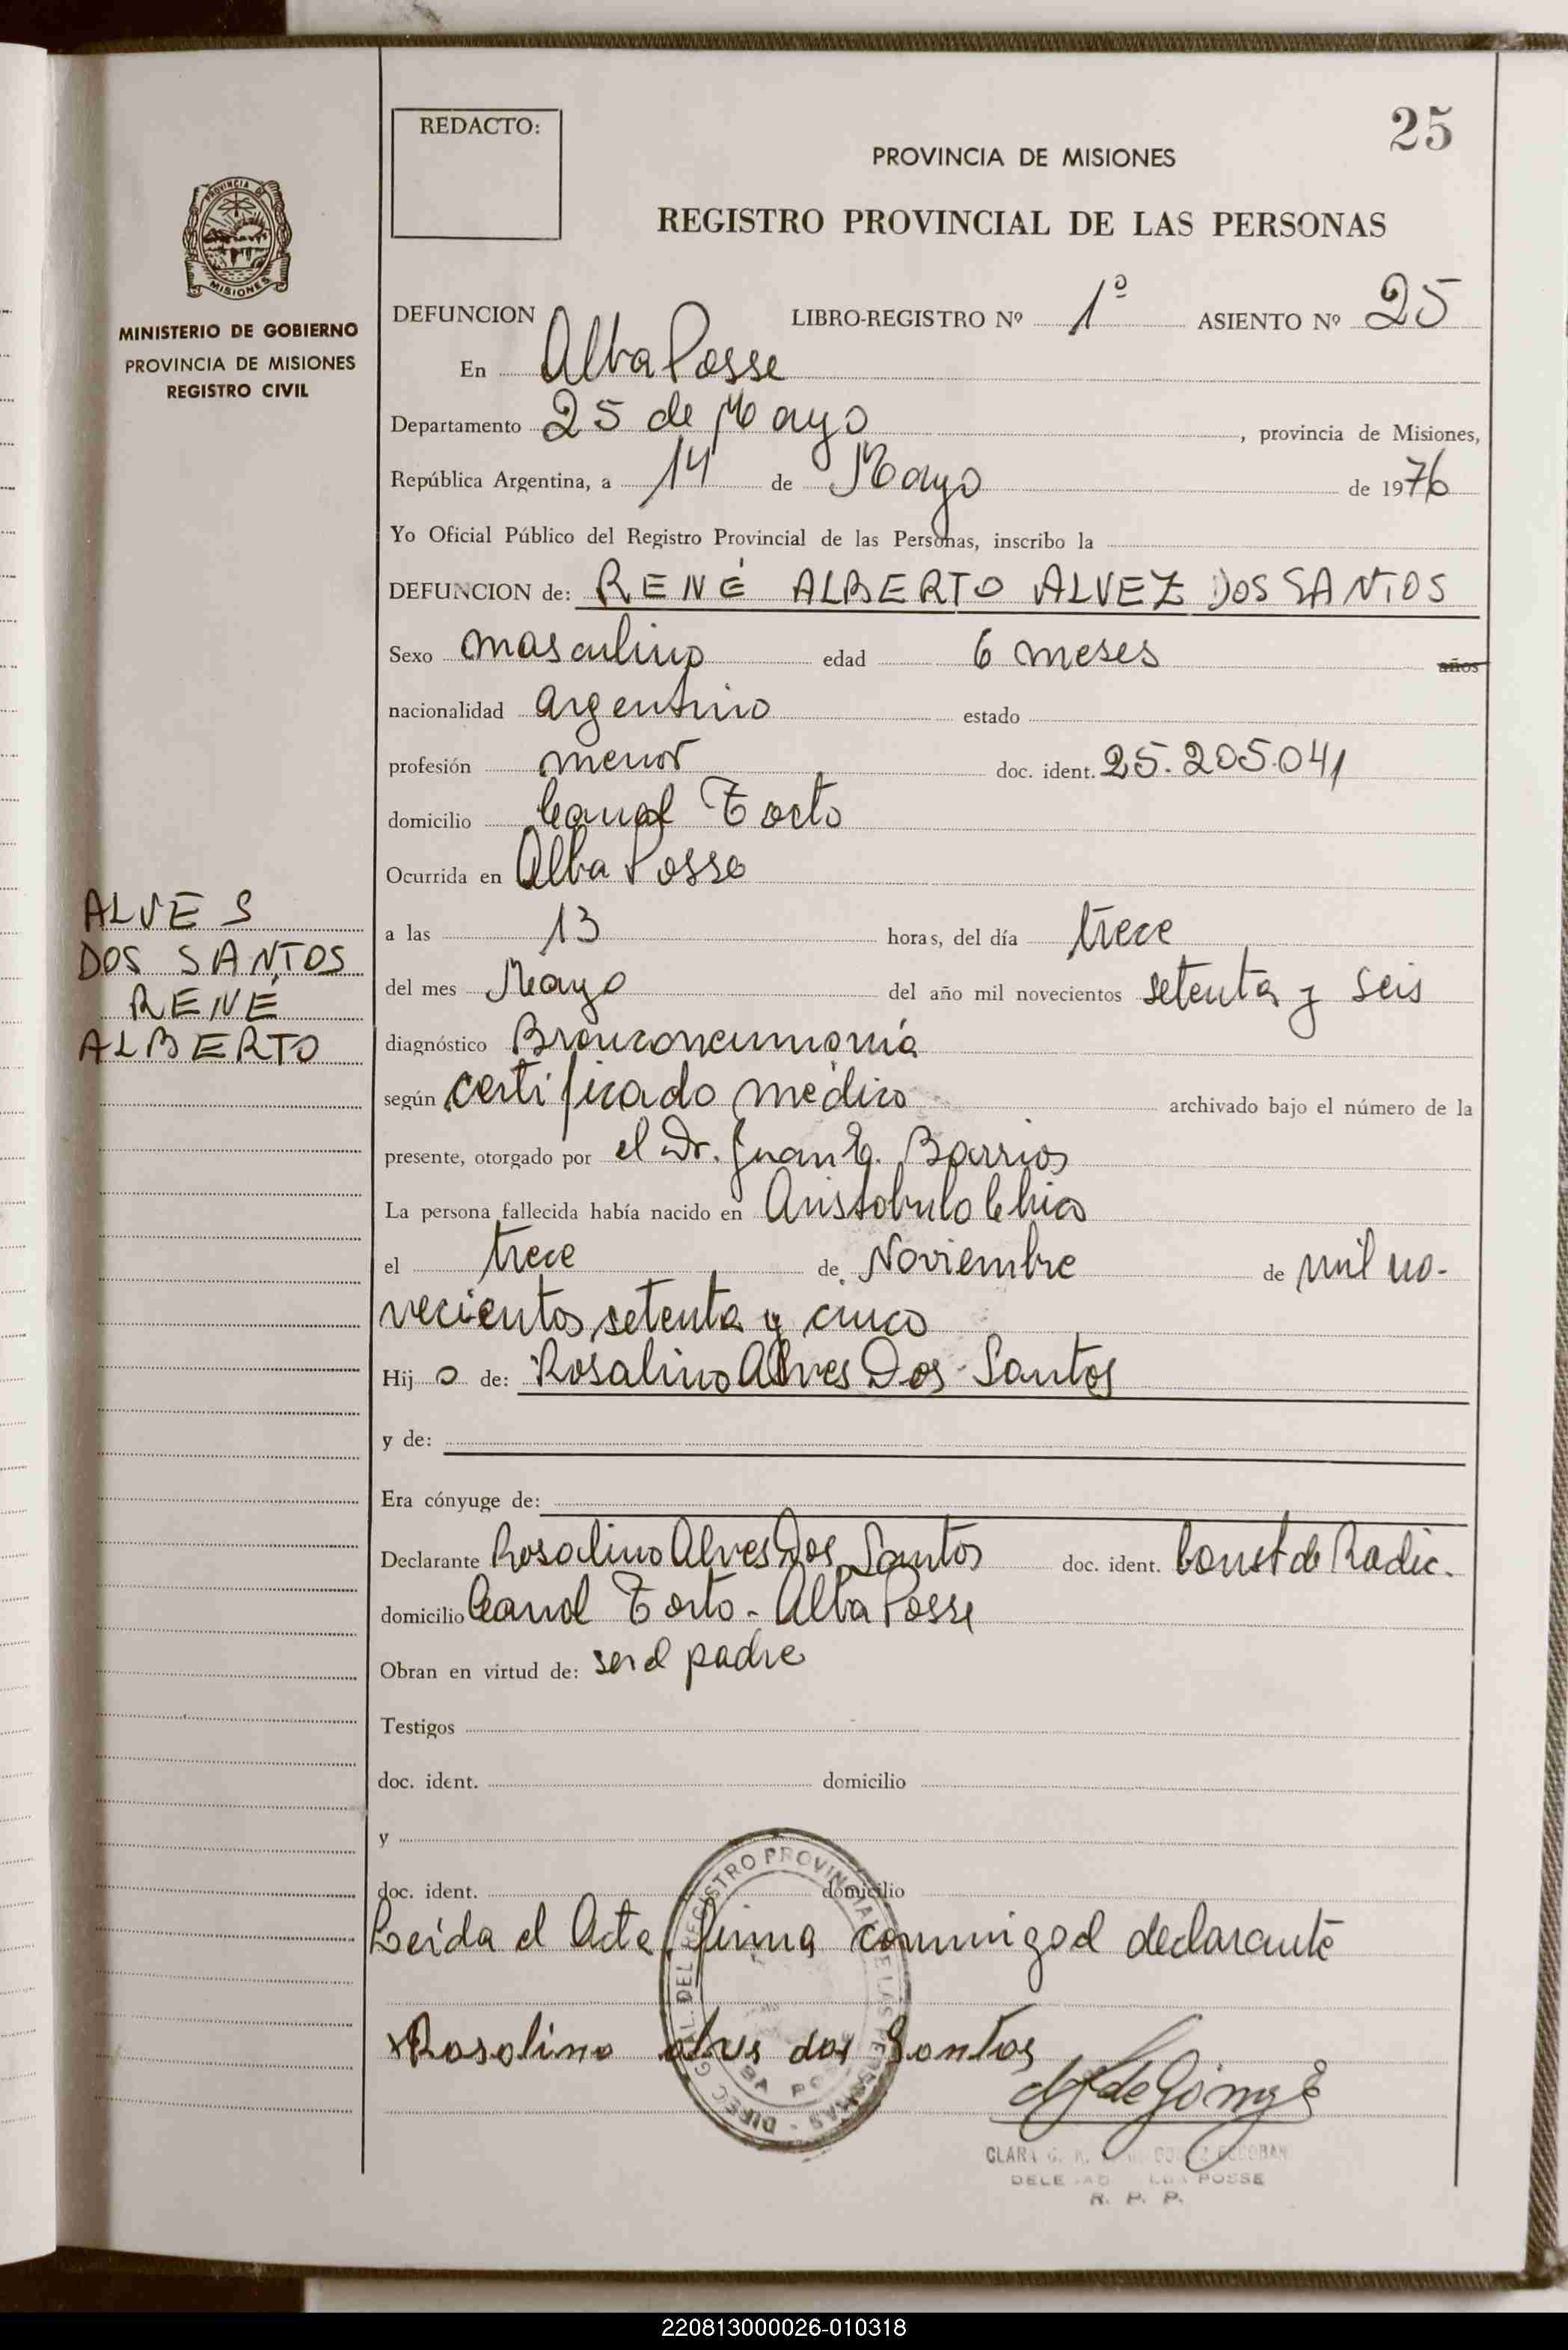 25
REDACTO:
PROVINCIA DE MISIONES
REGISTRO PROVINCIAL DE LAS PERSONAS
PROVINCIA DE
MISIONES
MINISTERIO DE GOBIERNO
PROVINCIA DE MISIONES
REGISTRO CIVIL
DEFUNCION LIBRO-REGISTRO Nº 1º ASIENTO Nº 25
En Alba Posse
Departamento 25 de Mayo, provincia de Misiones,
República Argentina, a 14 de Mayo de 1976
Yo Oficial Público del Registro Provincial de las Personas, inscribo la
DEFUNCION de: RENÉ ALBERTO ALVEZ DOS SANTOS
Sexo masculino edad 6 meses años
nacionalidad argentino estado
profesión menor doc. ident. 25.205.041
domicilio Canal Torto
Ocurrida en Alba Posse
a las 13 horas, del día trece
del mes Mayo del año mil novecientos setenta y seis
diagnóstico Bronconeumonía
según certificado médico archivado bajo el número de la
presente, otorgado por el Dr. Juan E. Barrios
La persona fallecida había nacido en Aristobulo Chico
el trece de Noviembre de mil no-
vecientos setenta y cinco
Hijo de: Rosalino Alves Dos Santos
y de:
Era cónyuge de:
Declarante Rosalino Alves Dos Santos doc. ident. Const de Radic.
domicilio Canal Torto - Alba Posse
Obran en virtud de: ser el padre
Testigos
doc. ident. domicilio
y
doc. ident. domicilio
Leída el Acta, firma conmigo el declarante
x Rosalino alves dos Santos
ALVES
DOS SANTOS
RENÉ
ALBERTO
DIREC GRAL. DEL REGISTRO PROVINCIAL DE LAS PERSONAS
ALBA POSSE
CLARA G.
POSSE
R. P. P.
220813000026-010318